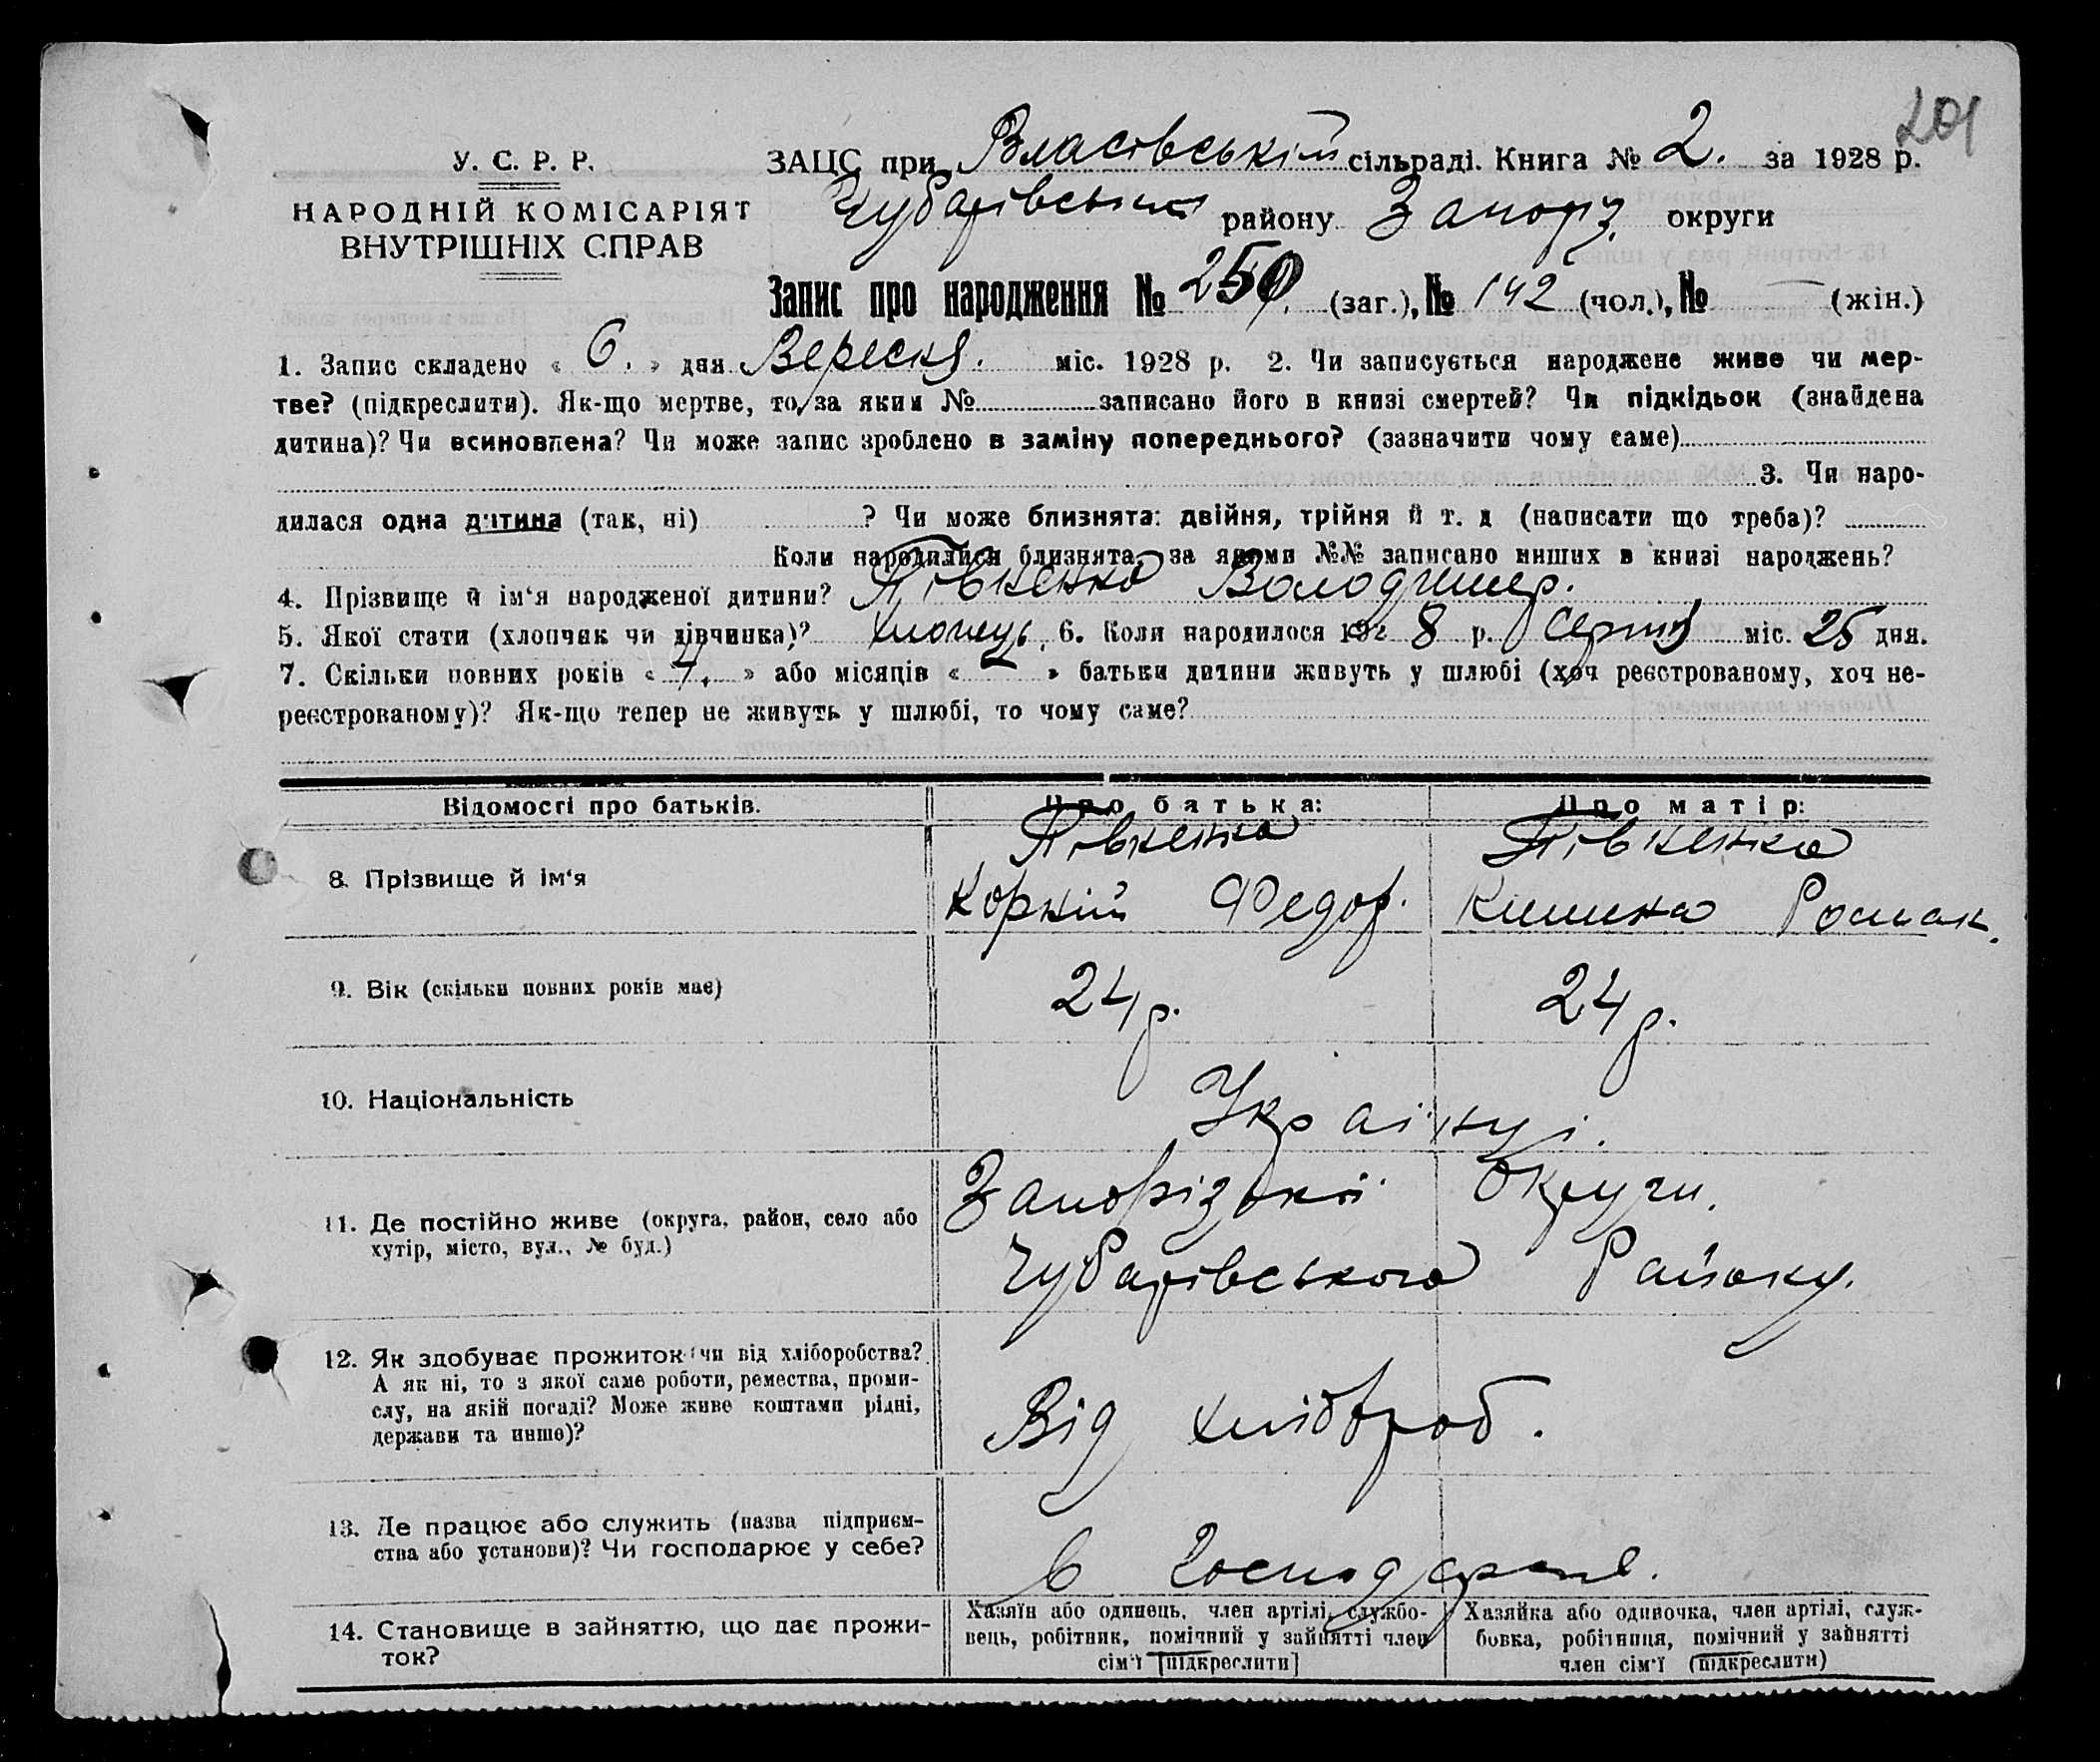 201
У. С. Р. Р.
НАРОДНІЙ КОМІСАРІЯТ
ВНУТРІШНІХ СПРАВ
ЗАЦС при Власівській сільраді. Книга № 2. за 1928 р.
Чубарівського району Запоріз. округи
Запис про народження № 250 (заг.), № 142 (чол.), № — (жін.)
1. Запис складено « 6. » дня Вересня. міс. 1928 р. 2. Чи записується народжене живе чи мер-
тве? (підкреслити). Як-що мертве, то за яким № записано його в книзі смертей? Чи підкідьок (знайдена
дитина)? Чи всиновлена? Чи може запис зроблено в заміну попереднього? (зазначити чому саме)
3. Чи наро-
дилася одна дитина (так, ні) ? Чи може близнята: двійня, трійня й т. д (написати що треба)?
Коли народилися близнята, за якими №№ записано инших в книзі народжень?
4. Прізвище й ім‘я народженої дитини? Півненко Володимер.
5. Якої стати (хлопчик чи дівчинка)? хлопець 6. Коли народилося 192 8 р. Серпня міс. 25 дня.
7. Скільки повних років « 7. » або місяців « — » батьки дитини живуть у шлюбі (хоч реєстрованому, хоч не-
реєстрованому)? Як-що тепер не живуть у шлюбі, то чому саме?
Відомості про батьків. Про батька: Про матір:
Півненко Півненко
8. Прізвище й ім‘я Корній Федор. Роман.
9. Вік (скільки повних років має) 24 р. 24 р.
10. Національність Українці.
11. Де постійно живе (округа, район, село або
хутір, місто, вул., № буд.)
Запорізької Округи.
Чубарівського Району.
12. Як здобуває прожиток (чи від хліборобства?
А як ні, то з якої саме роботи, ремества, проми-
слу, на якій посаді? Може живе коштами рідні,
держави та инше)?
Від хлібороб.
13. Де працює або служить (назва підприєм-
ства або установи)? Чи господарює у себе?
в Господарстві.
14. Становище в зайняттю, що дає прожи-
ток?
Хазяїн або одинець, член артілі, службо-
вець, робітник, помічний у зайнятті член
сім‘ї [підкреслити]
Хазяйка або одиночка, член артілі, служ-
бовка, робітниця, помічний у зайнятті
член сім‘ї (підкреслити)